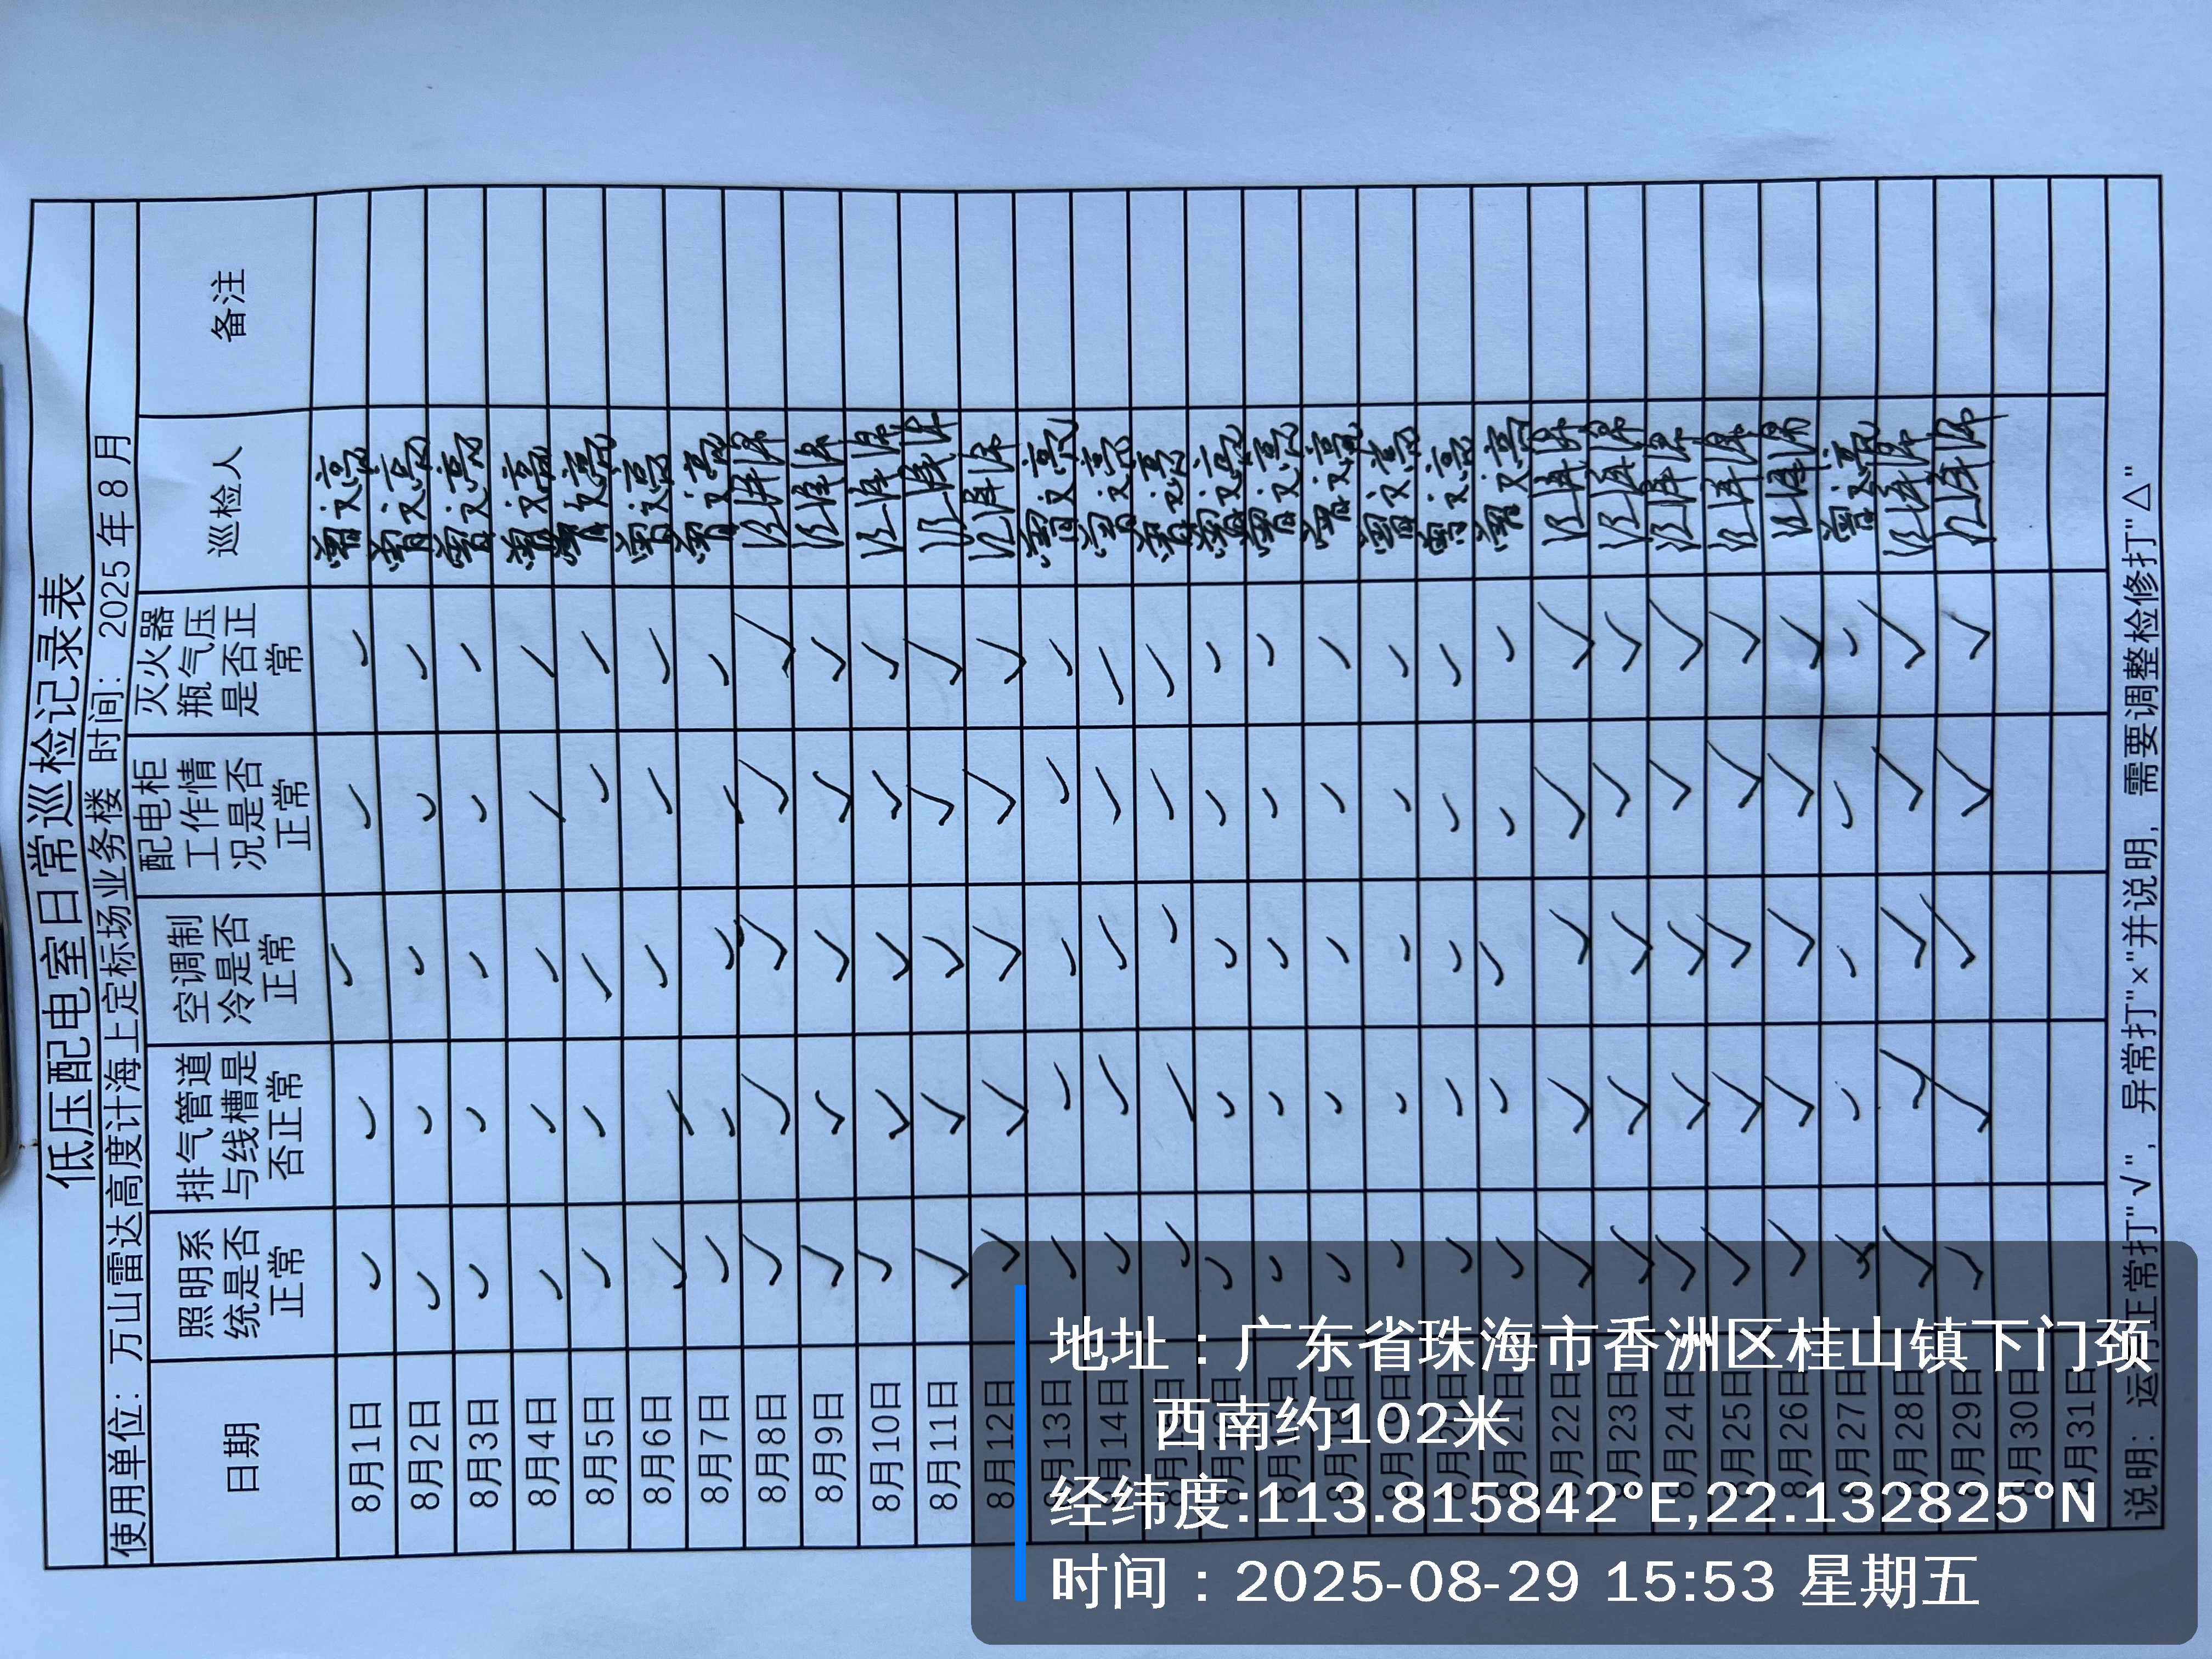 低压配电室日常巡检记录表
使用单位：万山雷达高度计海上定标场业务楼 时间：2025年8月
日期 照明系统是否正常 排气管道与线槽是否正常 空调制冷是否正常 配电柜工作情况是否正常 灭火器瓶气压是否正常 巡检人 备注
8月1日 √ √ √ √ √
8月2日 √ √ √ √ √
8月3日 √ √ √ √ √
8月4日 √ √ √ √ √
8月5日 √ √ √ √ √
8月6日 √ √ √ √ √
8月7日 √ √ √ √ √
8月8日 √ √ √ √ √
8月9日 √ √ √ √ √
8月10日 √ √ √ √ √
8月11日 √ √ √ √ √
8月12日 √ √ √ √ √
8月13日 √ √ √ √ √
8月14日 √ √ √ √ √
8月15日 √ √ √ √ √
8月16日 √ √ √ √ √
8月17日 √ √ √ √ √
8月18日 √ √ √ √ √
8月19日 √ √ √ √ √
8月20日 √ √ √ √ √
8月21日 √ √ √ √ √
8月22日 √ √ √ √ √
8月23日 √ √ √ √ √
8月24日 √ √ √ √ √
8月25日 √ √ √ √ √
8月26日 √ √ √ √ √
8月27日 √ √ √ √ √
8月28日 √ √ √ √ √
8月29日 √ √ √ √ √
8月30日
8月31日
说明：运行正常打"√"，异常打"×"并说明，需要调整检修打"△"
地址：广东省珠海市香洲区桂山镇下门颈
西南约102米
经纬度:113.815842°E,22.132825°N
时间：2025-08-29 15:53 星期五